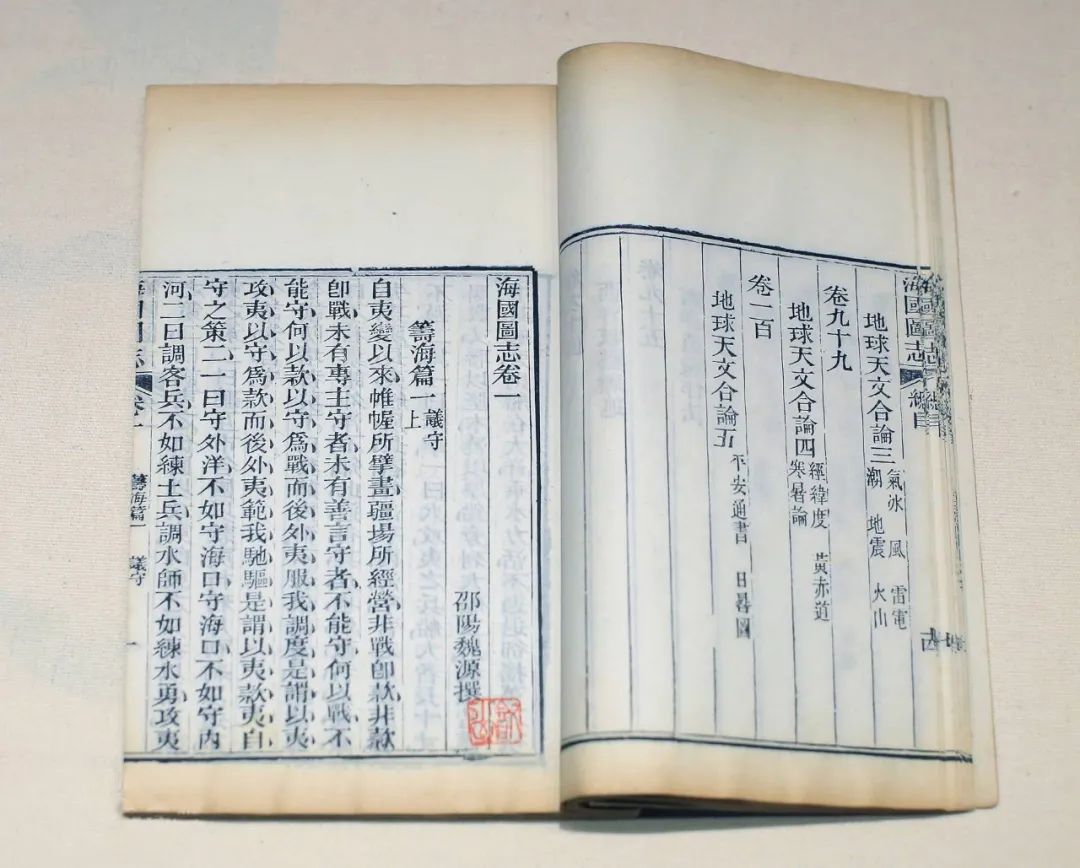 海國圖志 總目
地球天文合論三 氣冰 風 雷電
潮 地震 火山
卷九十九
地球天文合論四 經緯度 黃赤道
寒暑論
卷一百
地球天文合論五 平安通書 日晷圖
海國圖志卷一
邵陽魏源撰
籌海篇一 議守上
自夷變以來帷幄所擘畫疆場所經營非戰卽款非款
卽戰未有專主守者未有善言守者不能守何以戰不
能守何以款以守爲戰而後外夷服我調度是謂以夷
攻夷以守爲款而後外夷範我馳驅是謂以夷款夷自
守之策二一曰守外洋不如守海口守海口不如守內
河二曰調客兵不如練土兵調水師不如練水勇攻夷
海國圖志 卷一 籌海篇一 議守 一